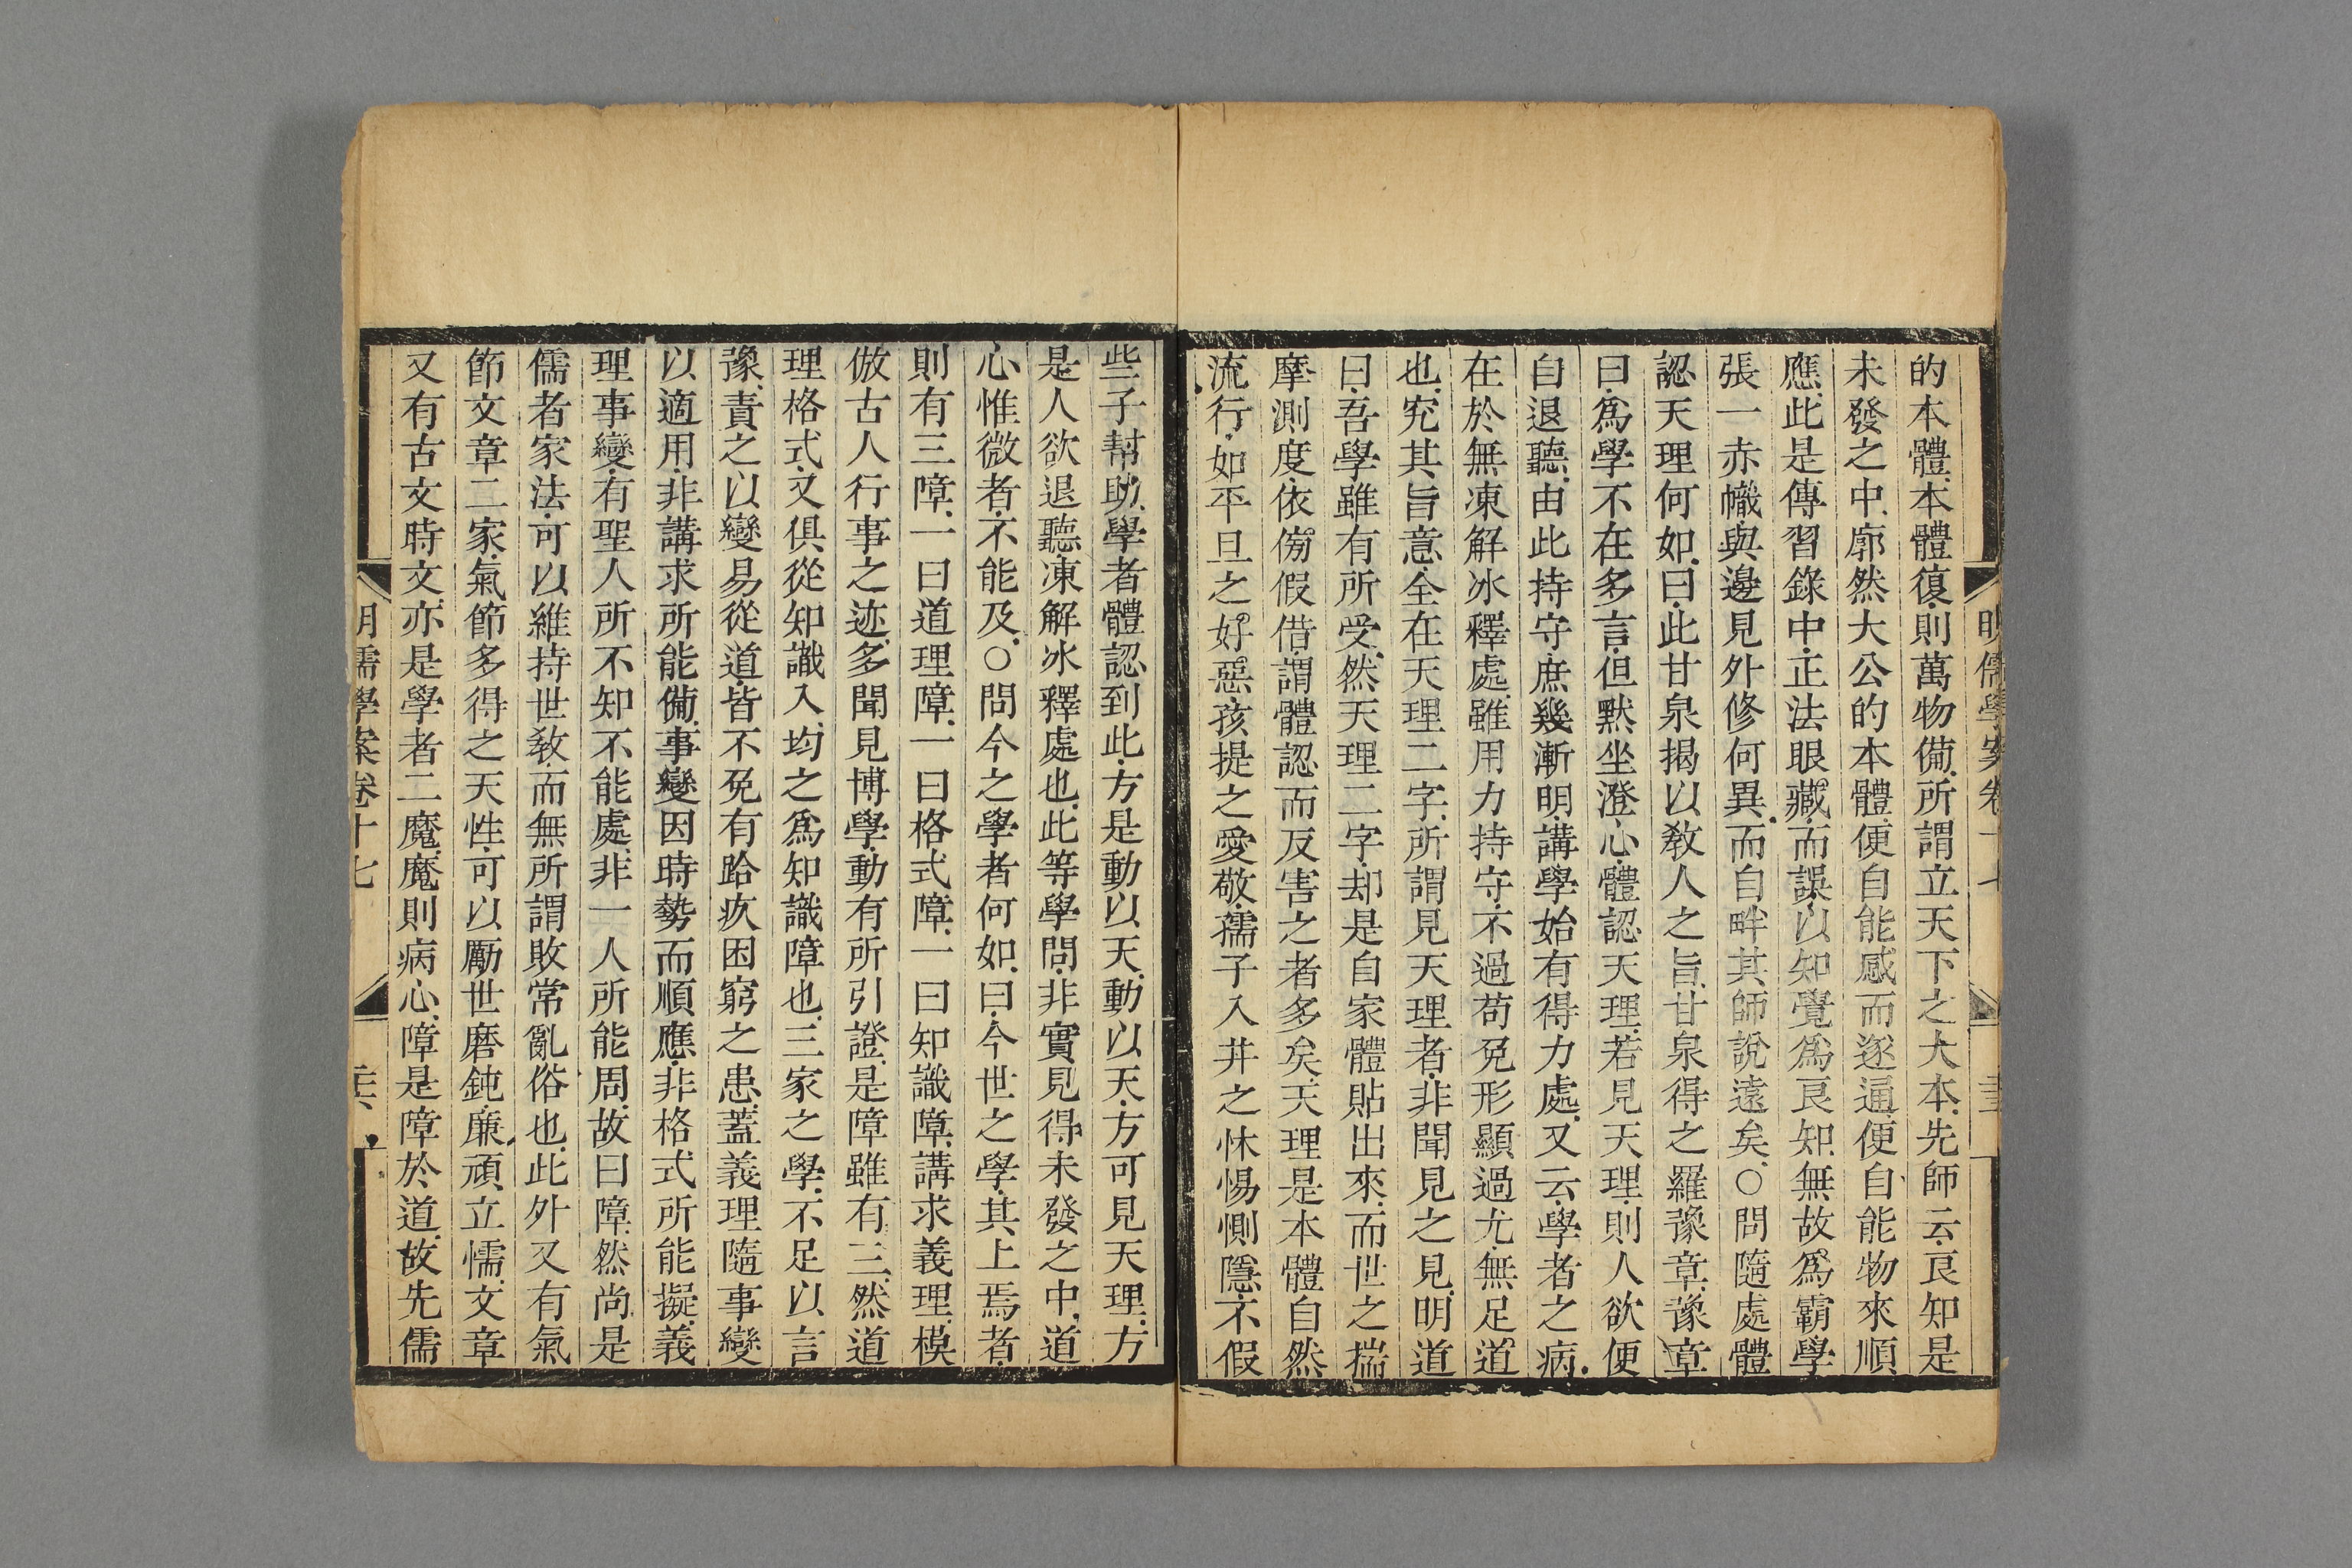 明儒學案卷十七
的本體、本體復、則萬物備、所謂立天下之大本、先師云、良知是
未發之中、廓然大公的本體、便自能感而遂通、便自能物來順
應、此是傳習錄中、正法眼藏、而誤以知覺爲良知、無故爲霸學
張一赤幟、與邊見外修何異、而自畔其師說遠矣、○問隨處體
認天理何如、曰、此甘泉揭以敎人之旨、甘泉得之羅豫章、豫章
曰、爲學不在多言、但默坐澄心、體認天理、若見天理、則人欲便
自退聽、由此持守、庶幾漸明、講學始有得力處、又云、學者之病、
在於無凍解冰釋處、雖用力持守、不過苟免形顯過尤、無足道
也、究其旨意、全在天理二字、所謂見天理者、非聞見之見、明道
曰、吾學雖有所受、然天理二字、却是自家體貼出來、而世之揣
摩測度、依傍假借、謂體認而反害之者多矣、天理是本體自然
流行、如平旦之好惡、孩提之愛敬、孺子入井之怵惕惻隱、不假
些子幫助、學者體認到此、方是動以天、動以天、方可見天理、方
是人欲退聽、凍解冰釋處也、此等學問、非實見得未發之中、道
心惟微者、不能及、○問今之學者何如、曰、今世之學、其上焉者、
則有三障、一曰道理障、一曰格式障、一曰知識障、講求義理、模
倣古人行事之迹、多聞見博學、動有所引證、是障雖有三、然道
理格式、又俱從知識入、均之爲知識障也、三家之學、不足以言
豫、責之以變易從道、皆不免有跲疚困窮之患、蓋義理隨事變
以適用、非講求所能備、事變因時勢而順應、非格式所能擬、義
理事變、有聖人所不知不能處、非一人所能周、故曰障、然尚是
儒者家法、可以維持世敎、而無所謂敗常亂俗也、此外又有氣
節文章二家、氣節多得之天性、可以勵世磨鈍、廉頑立懦、文章
又有古文時文、亦是學者二魔、魔則病心、障是障於道、故先儒
明儒學案卷十七